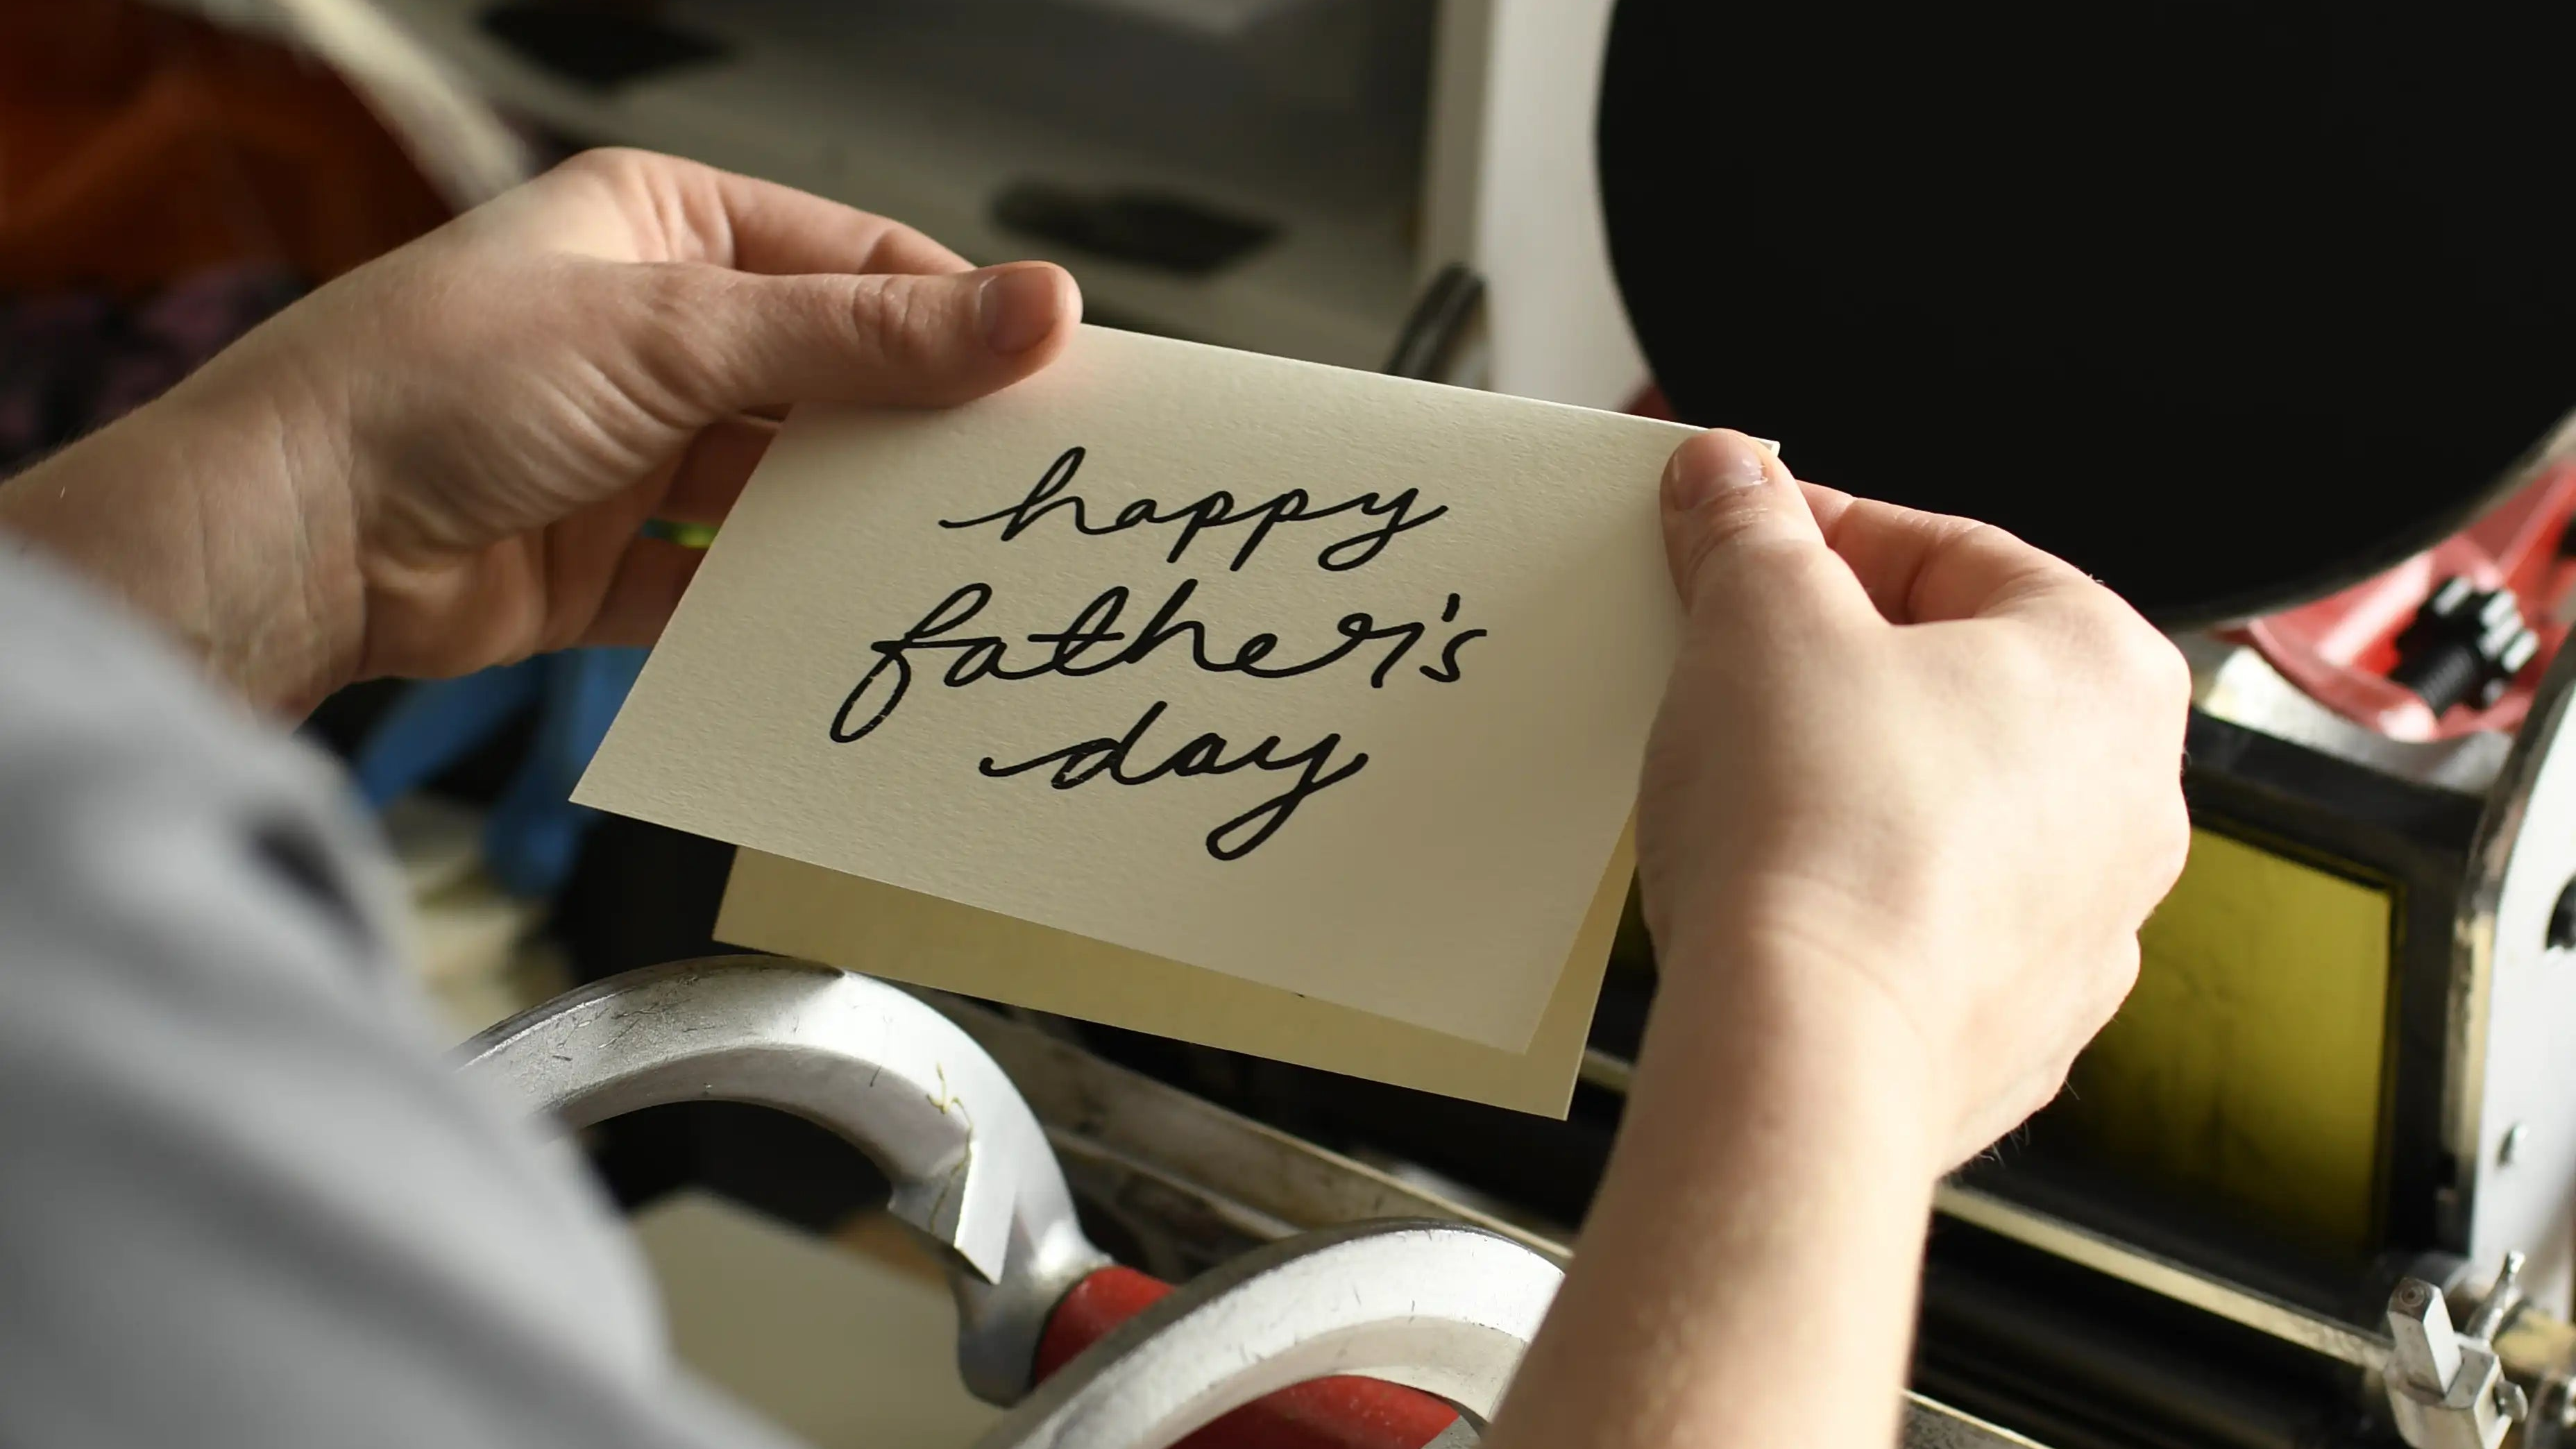 happy
father's
day